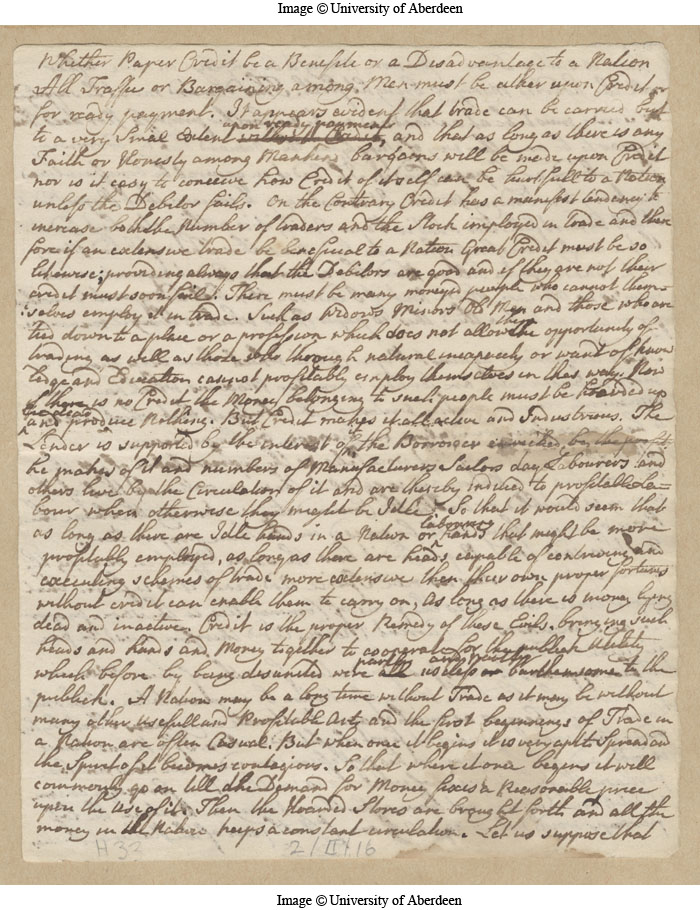 Image © University of Aberdeen
Whether Paper Credit be a Benefite or a Disadvantage to a Nation
All Traffic or Bargaining among Men must be either upon Credit or
for ready payment. It appears evident that trade can be carried but
upon ready payment
to a very Small Extent without Credit, and that as long as there is any
Faith or Honesty among Mankind bargains will be made upon Credit
nor is it easy to conceive how Credit of itself can be hurtfull to a Nation
unless the Debitor fails. On the Contrary Credit has a manifest tendency to
increase both the Number of traders and the Stock employed in trade and there
fore if an extensive trade be beneficial to a Nation Great Credit must be so
likewise; providing always that the Debitors are good and if they are not their
credit must soon fail. There must be many moneyed people who cannot them-
selves employ it in trade. Such as Widows Minors Old Men and those who are
tied down to a place or a profession which does not allow the opportunity of
trading as well as those who through natural incapacity or want of know
ledge and Education cannot profitably employ themselves in that way. Now
if there is no Credit the Money belonging to such people must be hoarded up
and produce Nothing. But Credit makes it all active and Industrious. The
Lender is supported by the interest of it, the Borrower enriched by the profit
he makes of it and numbers of Manufacturers Sailors day Labourers and
others live by the Circulation of it and are thereby induced to profitable la=
bour when otherwise they might be Idle. So that it would seem that
labourers
as long as there are Idle hands in a Nation or hands that might be more
profitably employed, as long as there are heads capable of contriving and
executing schemes of trade more extensive then their own proper fortunes
without credit can enable them to carry on, as long as there is money lying
dead and inactive. Credit is the proper Remedy of these Evils, bringing such
heads and hands and Money together to cooperate for the publick Utility
which before by being disunited were all useless or burthensome to the
publick. A Nation may be a long time without Trade as it may be without
many other usefull and Profitable Arts and the first beginnings of Trade in
a Nation are often Casual. But when once it begins it is very apt to Spread and
the Spirit of it becomes contagious. So that where it once begins it will
commonly go on till the Demand for Money fixes a Reasonable price
upon the Use of it. Then the Hoarded Stores are brought forth and all the
money in the Nation keeps a constant circulation. Let us suppose that
2/II/16
Image © University of Aberdeen